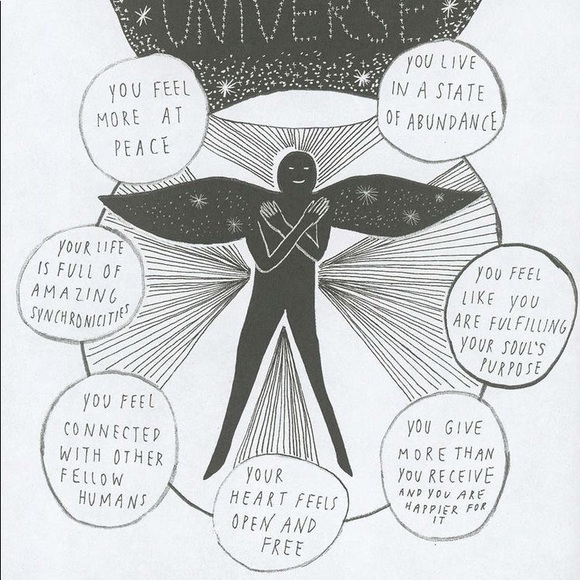 UNIVERSE
YOU FEEL
MORE AT
PEACE
YOU LIVE
IN A STATE
OF ABUNDANCE
YOUR LIFE
IS FULL OF
AMAZING
SYNCHRONICITIES
YOU FEEL
LIKE YOU
ARE FULFILLING
YOUR SOUL'S
PURPOSE
YOU FEEL
CONNECTED
WITH OTHER
FELLOW
HUMANS
YOU GIVE
MORE THAN
YOU RECEIVE
AND YOU ARE
HAPPIER FOR
IT
YOUR
HEART FEELS
OPEN AND
FREE